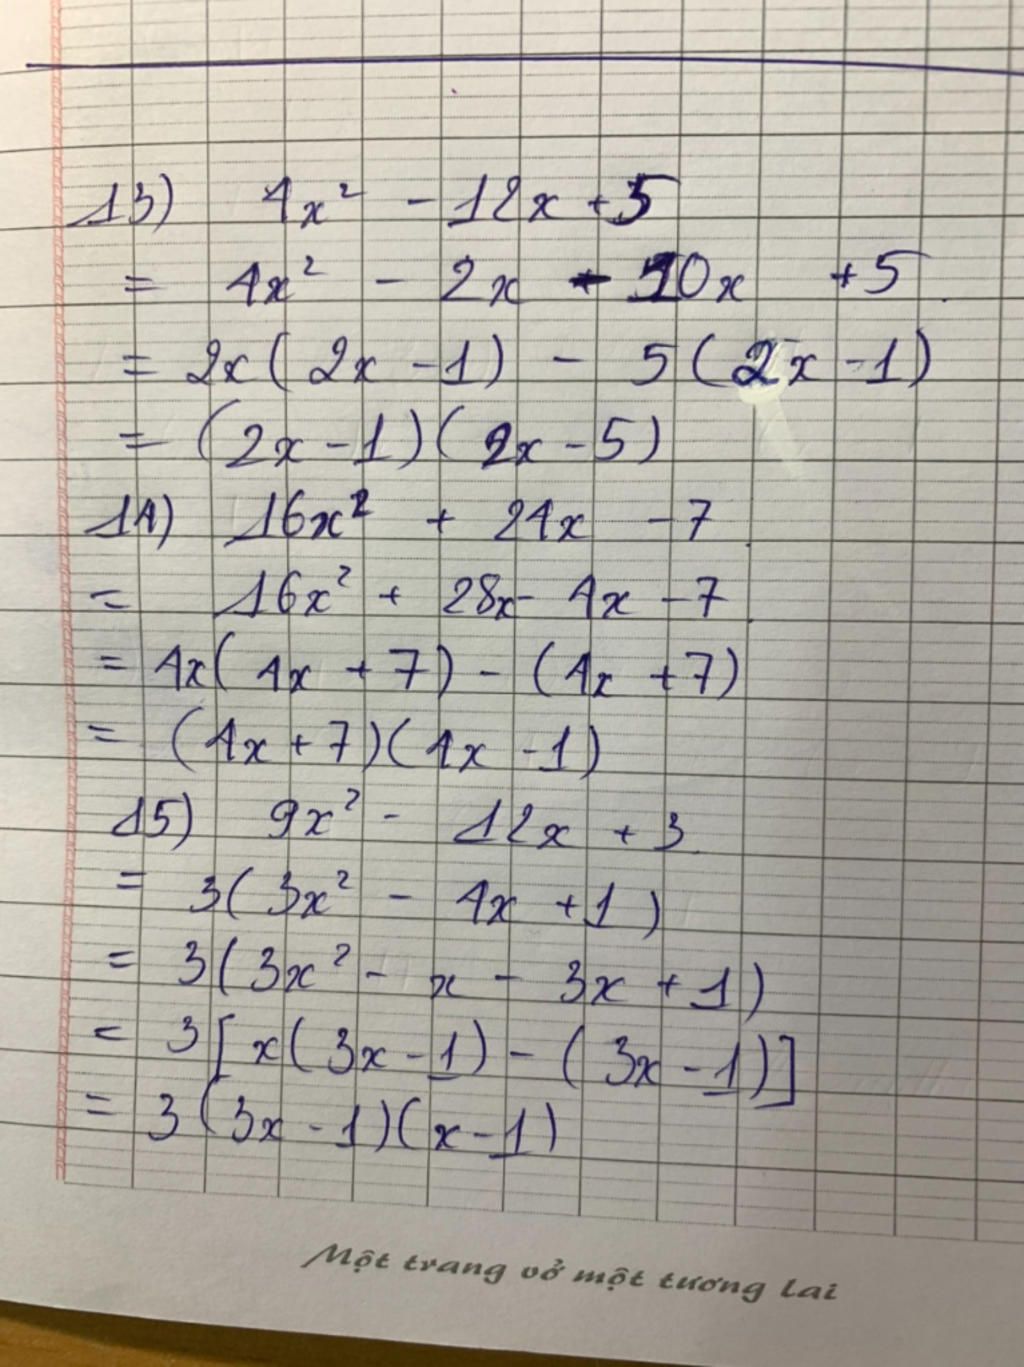 13) 4x² - 12x + 5
= 4x² - 2x - 10x + 5
= 2x(2x - 1) - 5(2x - 1)
= (2x - 1)(2x - 5)
14) 16x² + 24x - 7
= 16x² + 28x - 4x - 7
= 4x(4x + 7) - (4x + 7)
= (4x + 7)(4x - 1)
15) 9x² - 12x + 3
= 3(3x² - 4x + 1)
= 3(3x² - x - 3x + 1)
= 3[x(3x - 1) - (3x - 1)]
= 3(3x - 1)(x - 1)
Một trang vở một tương lai